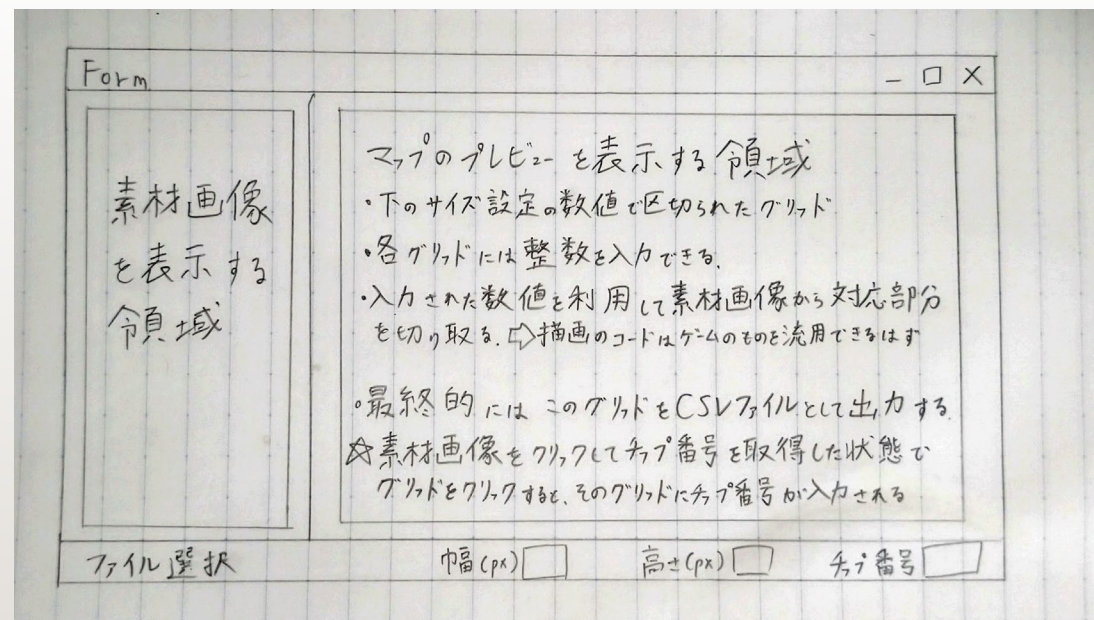 Form
素材画像
を表示する
領域
マップのプレビューを表示する領域
・下のサイズ設定の数値で区切られたグリッド
・各グリッドには整数を入力できる.
・入力された数値を利用して素材画像から対応部分
を切り取る.⇨描画のコードはゲームのものを流用できるはず
・最終的にはこのグリッドをCSVファイルとして出力する.
☆素材画像をクリックしてチップ番号を取得した状態で
グリッドをクリックすると、そのグリッドにチップ番号が入力される
ファイル選択 幅(px) 高さ(px) チップ番号